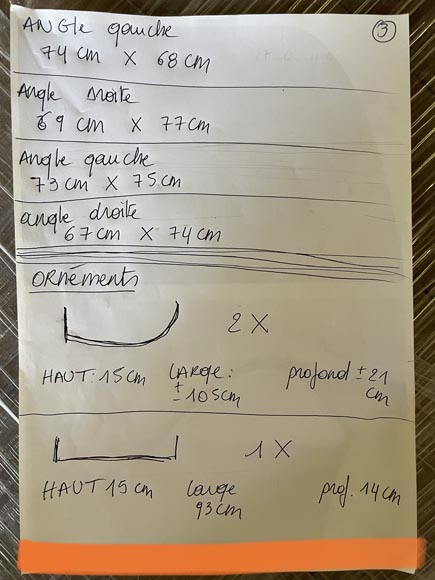 ANGLE gauche
3
74 cm X 68 cm
Angle droite
69 cm X 77 cm
Angle gauche
73 cm X 75 cm
angle droite
67 cm X 74 cm
ORNÉMENTS
2 X
HAUT: 15 cm LARGE: profond ± 21
± 105cm cm
1 X
HAUT 15 cm large prof. 14 cm
93 cm